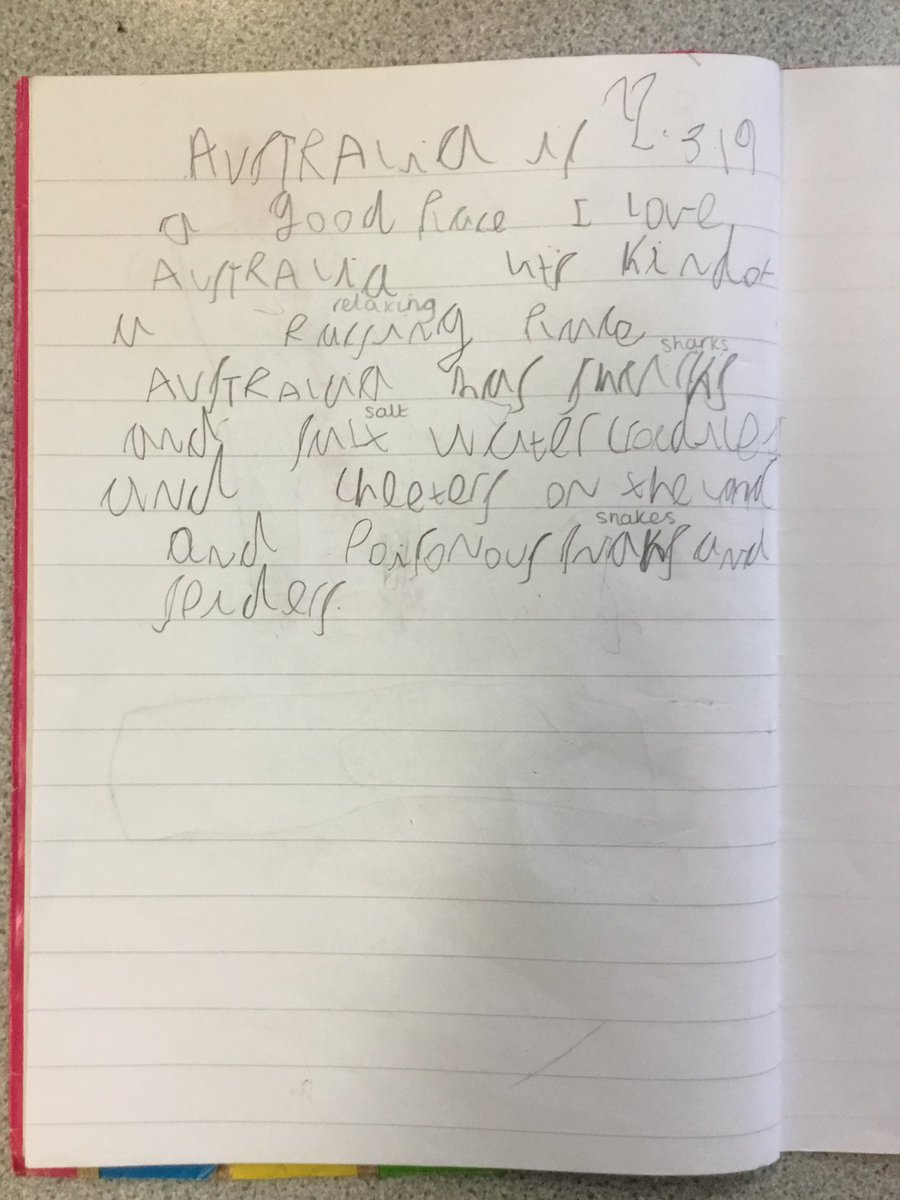 AUSTRALiA is 12.3 19
a good Place I Love
AUSTRALia its Kindof
relaxing
a Place
sharks
AUSTRALia has sharcks
salt
and water
and cheeters on the land
snakes
and Poisonous snaks and
spiders.